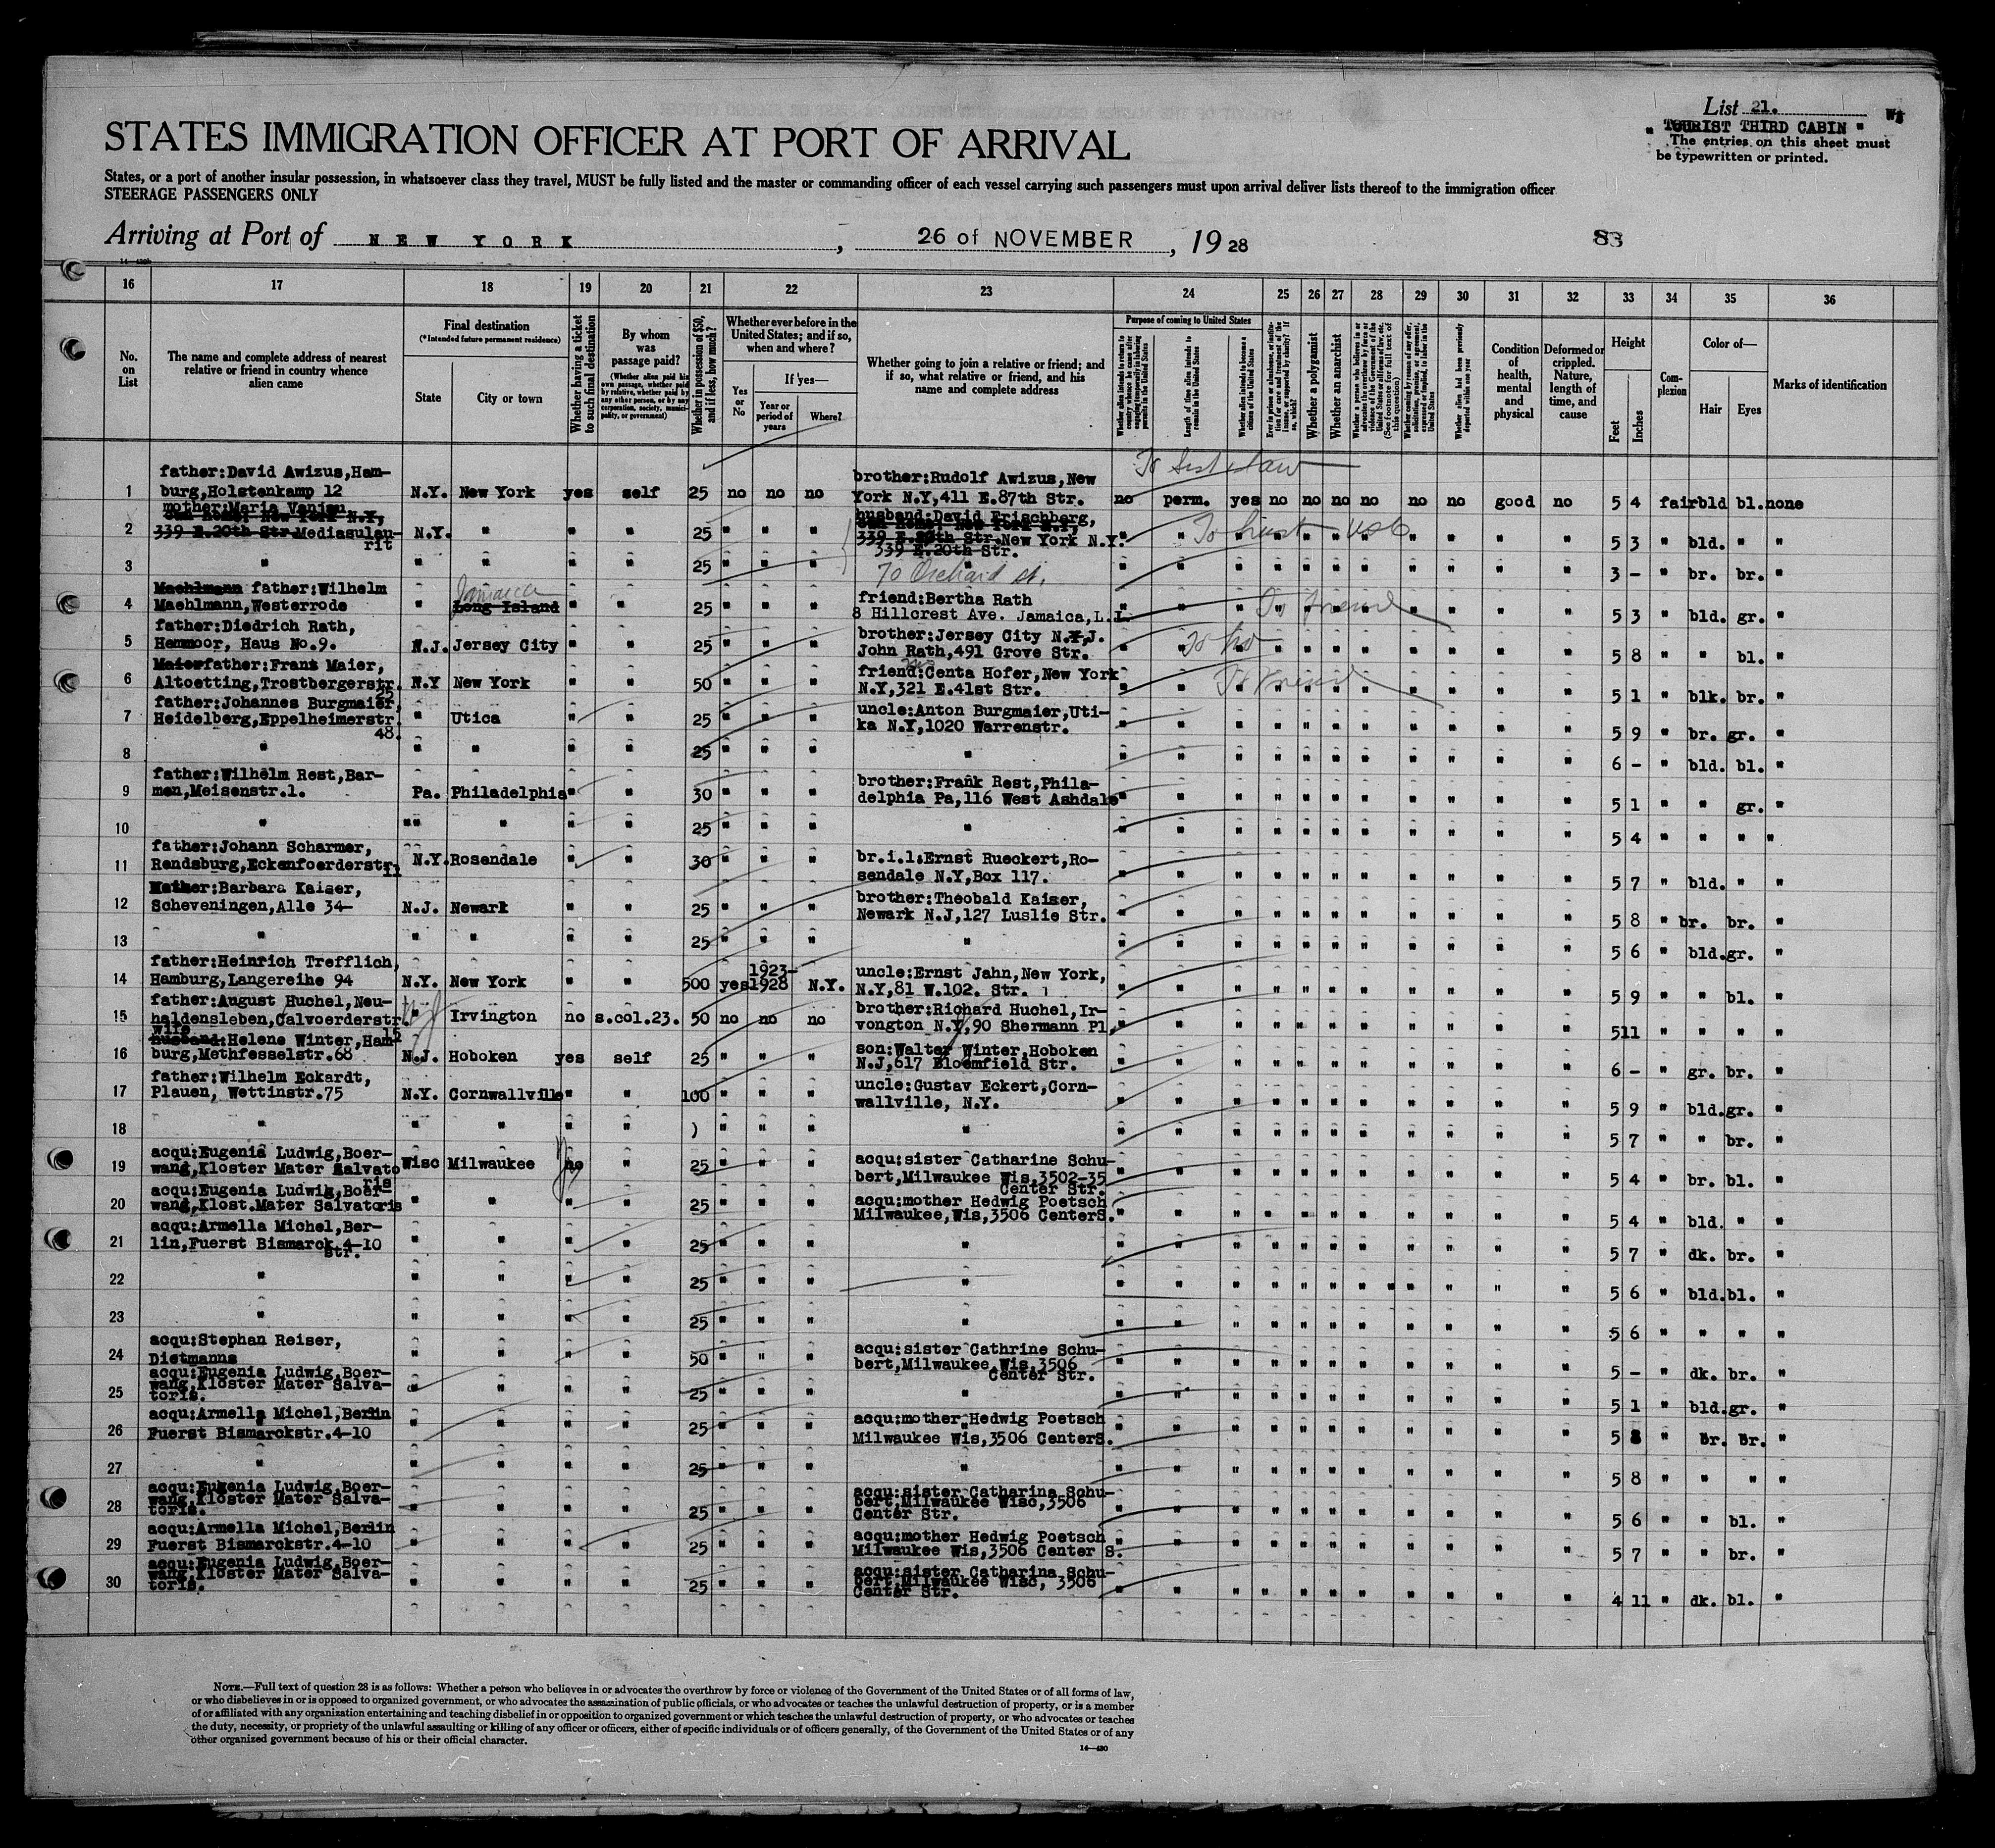 List 21.
" TOURIST THIRD CABIN "
The entries on this sheet must
be typewritten or printed.
STATES IMMIGRATION OFFICER AT PORT OF ARRIVAL
States, or a port of another insular possession, in whatsoever class they travel, MUST be fully listed and the master or commanding officer of each vessel carrying such passengers must upon arrival deliver lists thereof to the immigration officer
STEERAGE PASSENGERS ONLY
Arriving at Port of NEW YORK, 26 of NOVEMBER, 1928
83
16 17 18 19 20 21 22 23 24 25 26 27 28 29 30 31 32 33 34 35 36
No. on List
The name and complete address of nearest relative or friend in country whence alien came
Final destination
(*Intended future permanent residence)
State
City or town
Whether having a ticket to such final destination
By whom was passage paid?
(Whether alien paid his own passage, whether paid by relative, whether paid by any other person, or by any corporation, society, municipality, or government)
Whether in possession of $50, and if less, how much?
Whether ever before in the United States; and if so, when and where?
Yes or No
If yes—
Year or period of years
Where?
Whether going to join a relative or friend; and if so, what relative or friend, and his name and complete address
Purpose of coming to United States
Length of time alien intends to remain in the United States
Whether alien intends to become a citizen of the United States
Whether a polygamist
Whether an anarchist
Whether alien had been previously deported within one year
Condition of health, mental and physical
Deformed or crippled. Nature, length of time, and cause
Height
Feet
Inches
Complexion
Color of—
Hair
Eyes
Marks of identification
1 father:David Awizus,Ham-
burg,Holstenkamp 12 N.Y. New York yes self 25 no no no brother:Rudolf Awizus,New
York N.Y,411 E.87th Str. no perm. yes no no no no no no good no 5 4 fair bld bl. none
2 mother:Maria
339 E.20th Str. N.Y. " " " 25 " " " husband:David Frischberg,
339 E. Str.New York N.Y.
339 E.20th Str. " " 5 3 " bld. " "
3 " " " " " 25 " " " 70 Orchard st. 3 - " br. br. "
4 Maehlmann father:Wilhelm
Maehlmann,Westerrode " Jamaica Long Island " " 25 " " " friend:Bertha Rath
8 Hillcrest Ave. Jamaica,L.I. To friend 5 3 " bld. gr. "
5 father:Diedrich Rath,
Hemmoor, Haus No.9. N.J. Jersey City " " 25 " " " brother:Jersey City N.Y,J.
John Rath,491 Grove Str. 5 8 " " bl. "
6 Maier father:Franz Maier,
Altoetting,Trostbergerstr.
25 N.Y New York " " 50 " " " friend:Centa Hofer,New York
N.Y,321 E.41st Str. To friend 5 1 " blk. br. "
7 father:Johannes Burgmaier,
Heidelberg,Eppelheimerstr.
48. " Utica " " 25 " " " uncle:Anton Burgmaier,Uti-
ka N.Y,1020 Warrenstr. 5 9 " br. gr. "
8 " " " " " 25 " " " " 6 - " bld. bl. "
9 father:Wilhelm Rest,Bar-
men,Meisenstr.1. Pa. Philadelphia " " 30 " " " brother:Frank Rest,Phila-
delphia Pa,116 West Ashdale 5 1 " " gr. "
10 " " " " " 25 " " " " 5 4 " " " "
11 father:Johann Scharmer,
Rendsburg,Eckenfoerderstr,
11 N.Y. Rosendale " " 30 " " " br.i.l:Ernst Rueckert,Ro-
sendale N.Y,Box 117. 5 7 " bld. " "
12 :Barbara Kaiser,
Scheveningen,Alle 34- N.J. Newark " " 25 " " " brother:Theobald Kaiser,
Newark N.J,127 Luslie Str. 5 8 " br. br. "
13 " " " " " 25 " " " " 5 6 " bld. gr. "
14 father:Heinrich Trefflich,
Hamburg,Langereihe 94 N.Y. New York " " 500 yes 1923-
1928 N.Y. uncle:Ernst Jahn,New York,
N.Y,81 W.102. Str. 5 9 " " bl. "
15 father:August Huchel,Neu-
haldensleben,Calvoerderstr.
15 " Irvington no s.col.23. 50 no no no brother:Richard Huchel,Ir-
vongton N.Y,90 Shermann Pl. 5 11 " " " "
16 wife
husband:Helene Winter,Ham-
burg,Methfesselstr.68 N.J. Hoboken yes self 25 " " " son:Walter Winter,Hoboken
N.J,617 Bloemfield Str. 6 - " gr. br. "
17 father:Wilhelm Eckardt,
Plauen, Wettinstr.75 N.Y. Cornwallville " " 100 " " " uncle:Gustav Eckert,Corn-
wallville, N.Y. 5 9 " bld. gr. "
18 " " " " " ) " " " " 5 7 " " br. "
19 acqu:Eugenia Ludwig,Boer-
wang,Kloster Mater Salvato
ris Wisc Milwaukee no " 25 " " " acqu:sister Catharine Schu-
bert,Milwaukee Wis,3502-35
Center Str. 5 4 " br. bl. "
20 acqu:Eugenia Ludwig,Boer-
wang,Klost.Mater Salvatoris " " " " 25 " " " acqu:mother Hedwig Poetsch
Milwaukee,Wis,3506 CenterS. 5 4 " bld. " "
21 acqu:Armella Michel,Ber-
lin,Fuerst Bismarck,4-10
str. " " " " 25 " " " " 5 7 " dk. br. "
22 " " " " " 25 " " " " 5 6 " bld. bl. "
23 " " " " " 25 " " " " 5 6 " " " "
24 acqu:Stephan Reiser,
Dietmanns " " " " 50 " " " acqu:sister Cathrine Schu-
bert,Milwaukee,Wis,3506
Center Str. 5 - " dk. br. "
25 acqu:Eugenia Ludwig,Boer-
wang,Kloster Mater Salva-
toris. " " " " 25 " " " " 5 1 " bld. gr. "
26 acqu:Armella Michel,Berlin
Fuerst Bismarckstr.4-10 " " " " 25 " " " acqu:mother Hedwig Poetsch
Milwaukee Wis,3506 CenterS. 5 " Br. Br. "
27 " " " " " 25 " " " " 5 8 " " " "
28 acqu:Eugenia Ludwig,Boer-
wang,Kloster Mater Salva-
toris. " " " " 25 " " " acqu:sister Catharina Schu-
bert,Milwaukee Wisc,3506
Center Str. 5 6 " " bl. "
29 acqu:Armella Michel,Berlin
Fuerst Bismarckstr.4-10 " " " " 25 " " " acqu:mother Hedwig Poetsch
Milwaukee Wis,3506 Center S. 5 7 " " br. "
30 acqu:Eugenia Ludwig,Boer-
wang,Kloster Mater Salva-
toris. " " " " 25 " " " acqu:sister Catharina Schu-
bert,Milwaukee Wisc, 3506
Center Str. 4 11 " dk. bl. "
NOTE.—Full text of question 28 is as follows: Whether a person who believes in or advocates the overthrow by force or violence of the Government of the United States or of all forms of law,
or who disbelieves in or is opposed to organized government, or who advocates the assassination of public officials, or who advocates or teaches the unlawful destruction of property, or is a member
of or affiliated with any organization entertaining and teaching disbelief in or opposition to organized government or which teaches the unlawful destruction of property, or who advocates or teaches
the duty, necessity, or propriety of the unlawful assaulting or killing of any officer or officers, either of specific individuals or of officers generally, of the Government of the United States or of any
other organized government because of his or their official character.
14—430